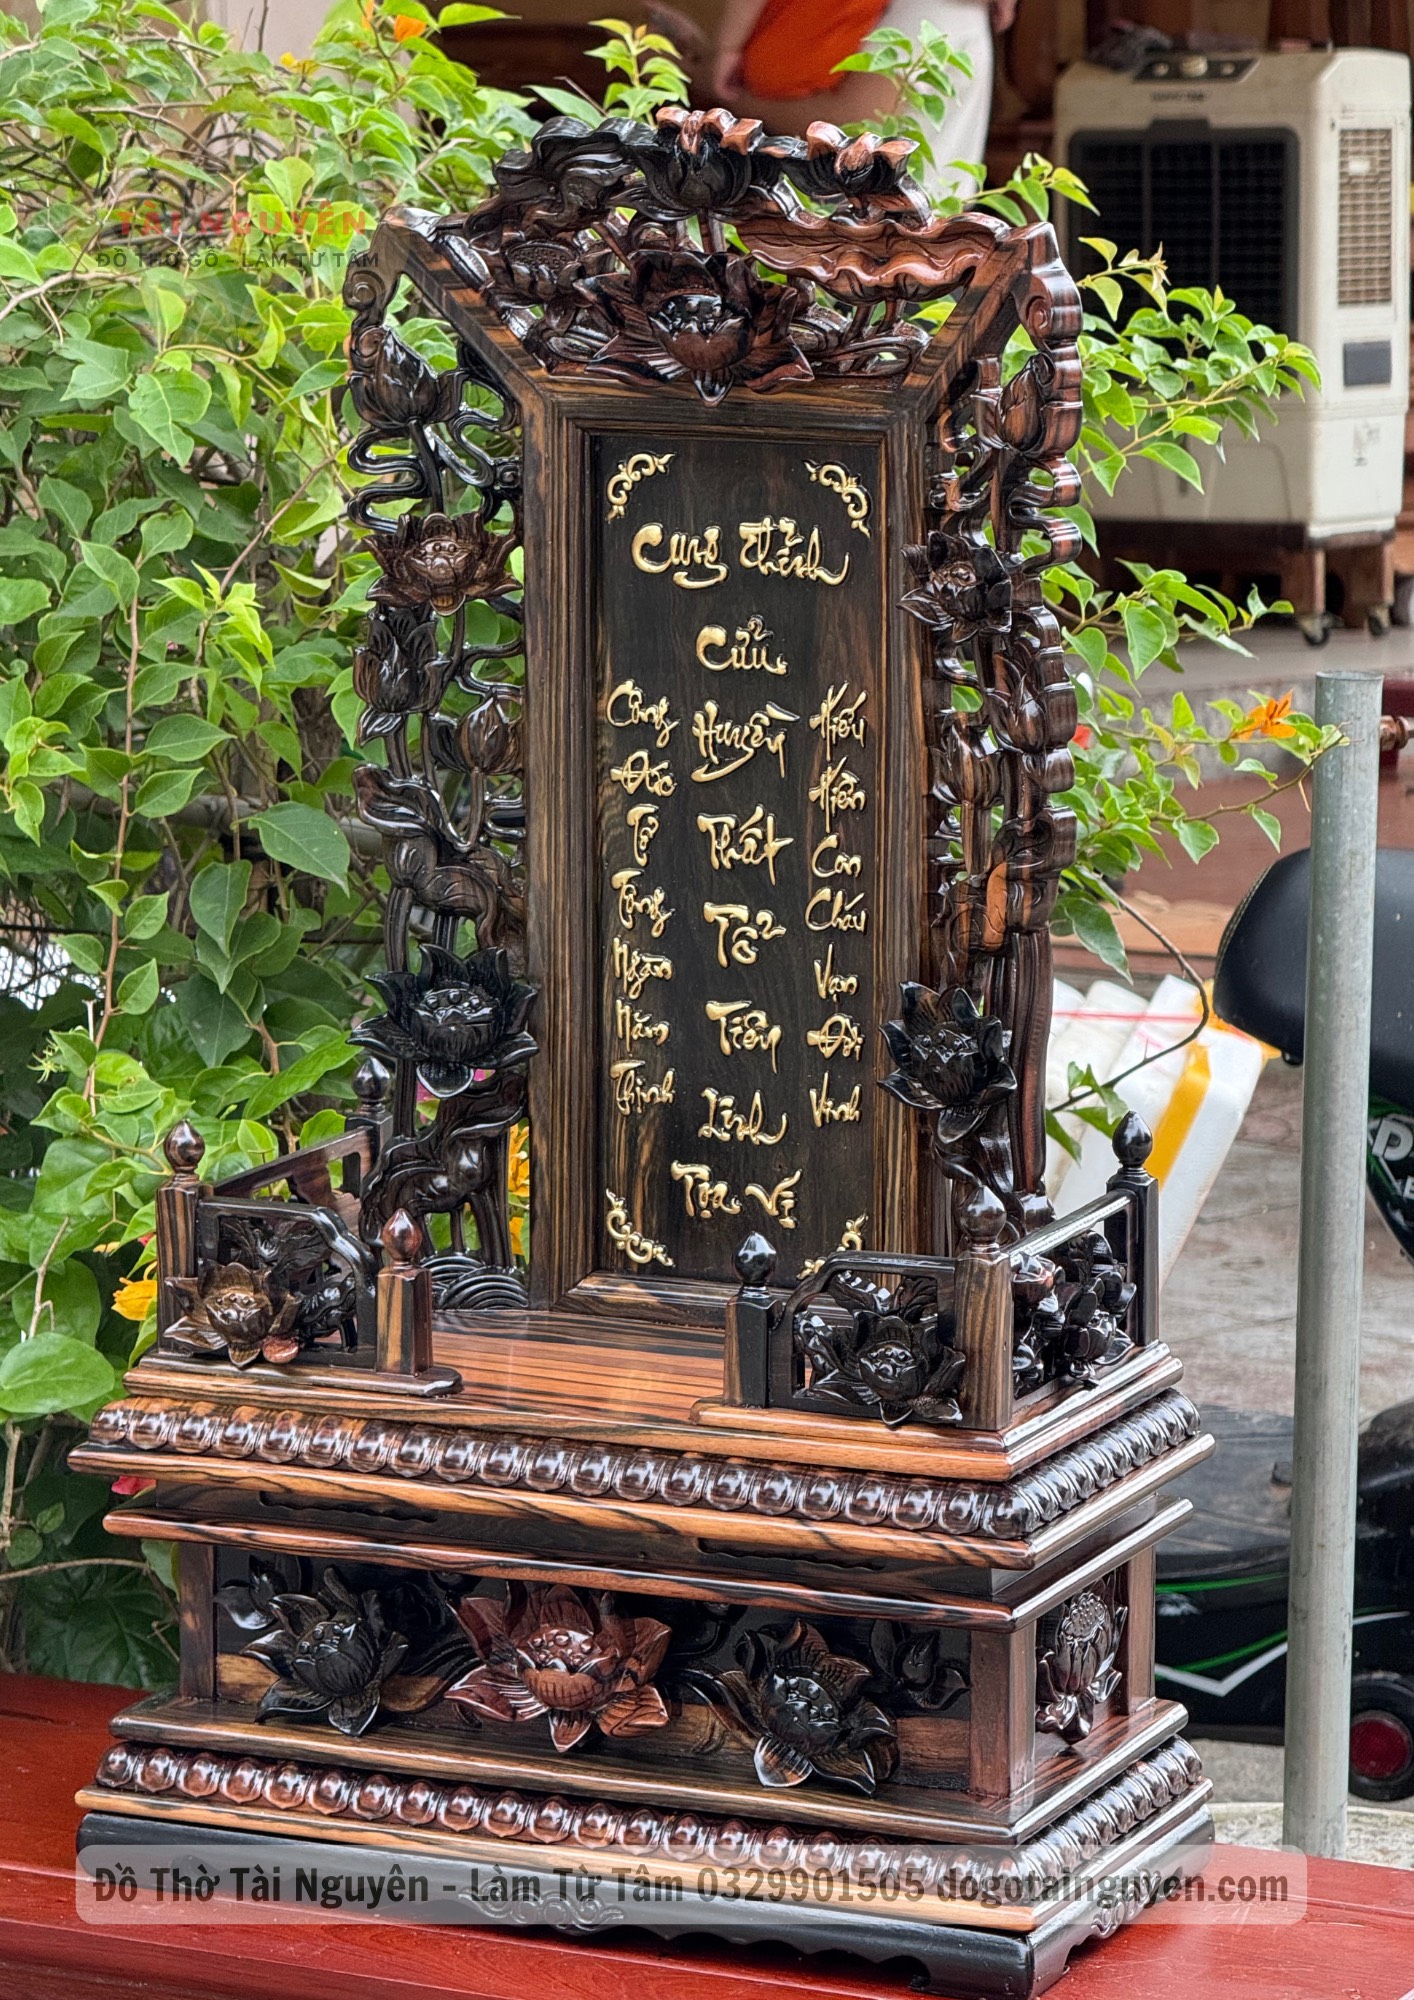 TÀI NGUYÊN
ĐỒ THỜ GỖ - LÀM TỪ TÂM
Cung Thỉnh
Cửu
Huyền
Thất
Tổ
Tiên
Linh
Tọa Vị
Công
Đức
Tổ
Tông
Ngàn
Năm
Thịnh
Hiếu
Hiền
Con
Cháu
Vạn
Đời
Vinh
Đồ Thờ Tài Nguyên - Làm Từ Tâm 0329901505 dogotainguyen.com